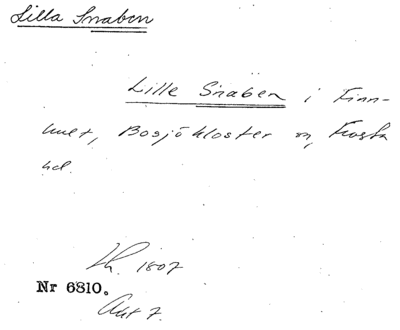 Lilla Snaben
Lille Snaben i Finn-
hult, Bosjökloster sn, Frosta
hd.
Lh. 1807
Nr 6810.
Akt 7.